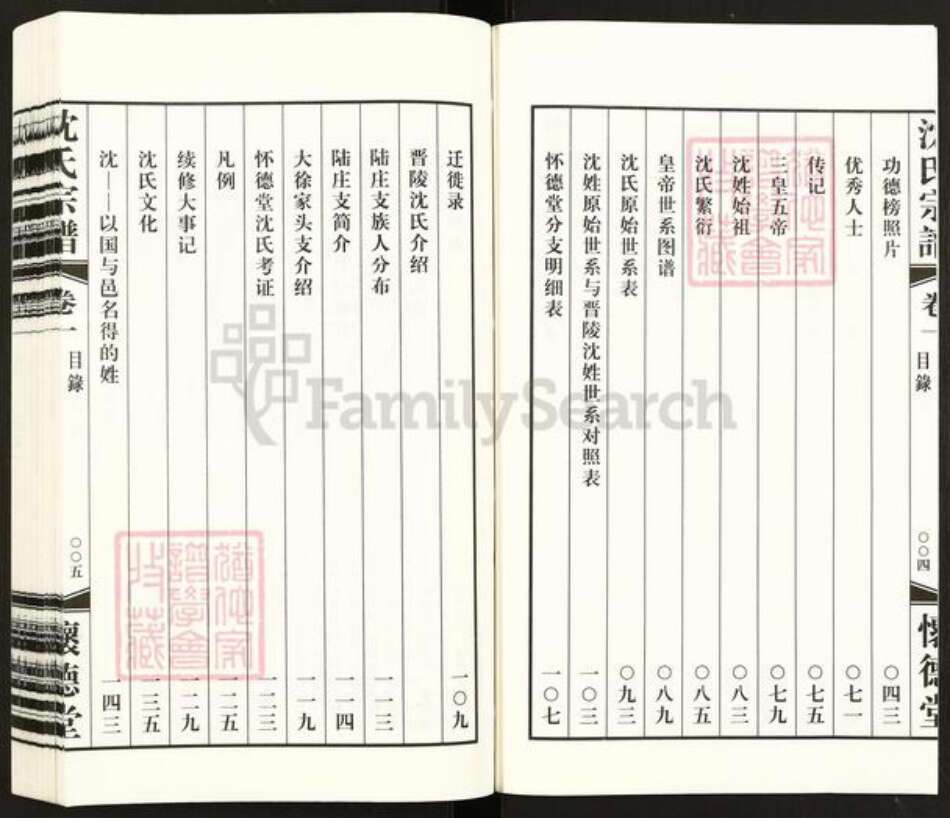 沈氏宗譜
卷一
目錄
〇〇四
懷德堂
功德榜照片 〇四三
优秀人士 〇七一
传记 〇七五
三皇五帝 〇七九
沈姓始祖 〇八三
沈氏繁衍 〇八五
皇帝世系图谱 〇八九
沈氏原始世系表 〇九三
沈姓原始世系与晋陵沈姓世系对照表 一〇三
怀德堂分支明细表 一〇七
迁徙录 一〇九
晋陵沈氏介绍
陆庄支族人分布 一一三
陆庄支简介 一一四
大徐家头支介绍 一一九
怀德堂沈氏考证 一二三
凡例 一二五
续修大事记 一二九
沈氏文化 一三五
沈——以国与邑名得的姓 一四三
沈氏宗譜
卷一
目錄
〇〇五
懷德堂
FamilySearch